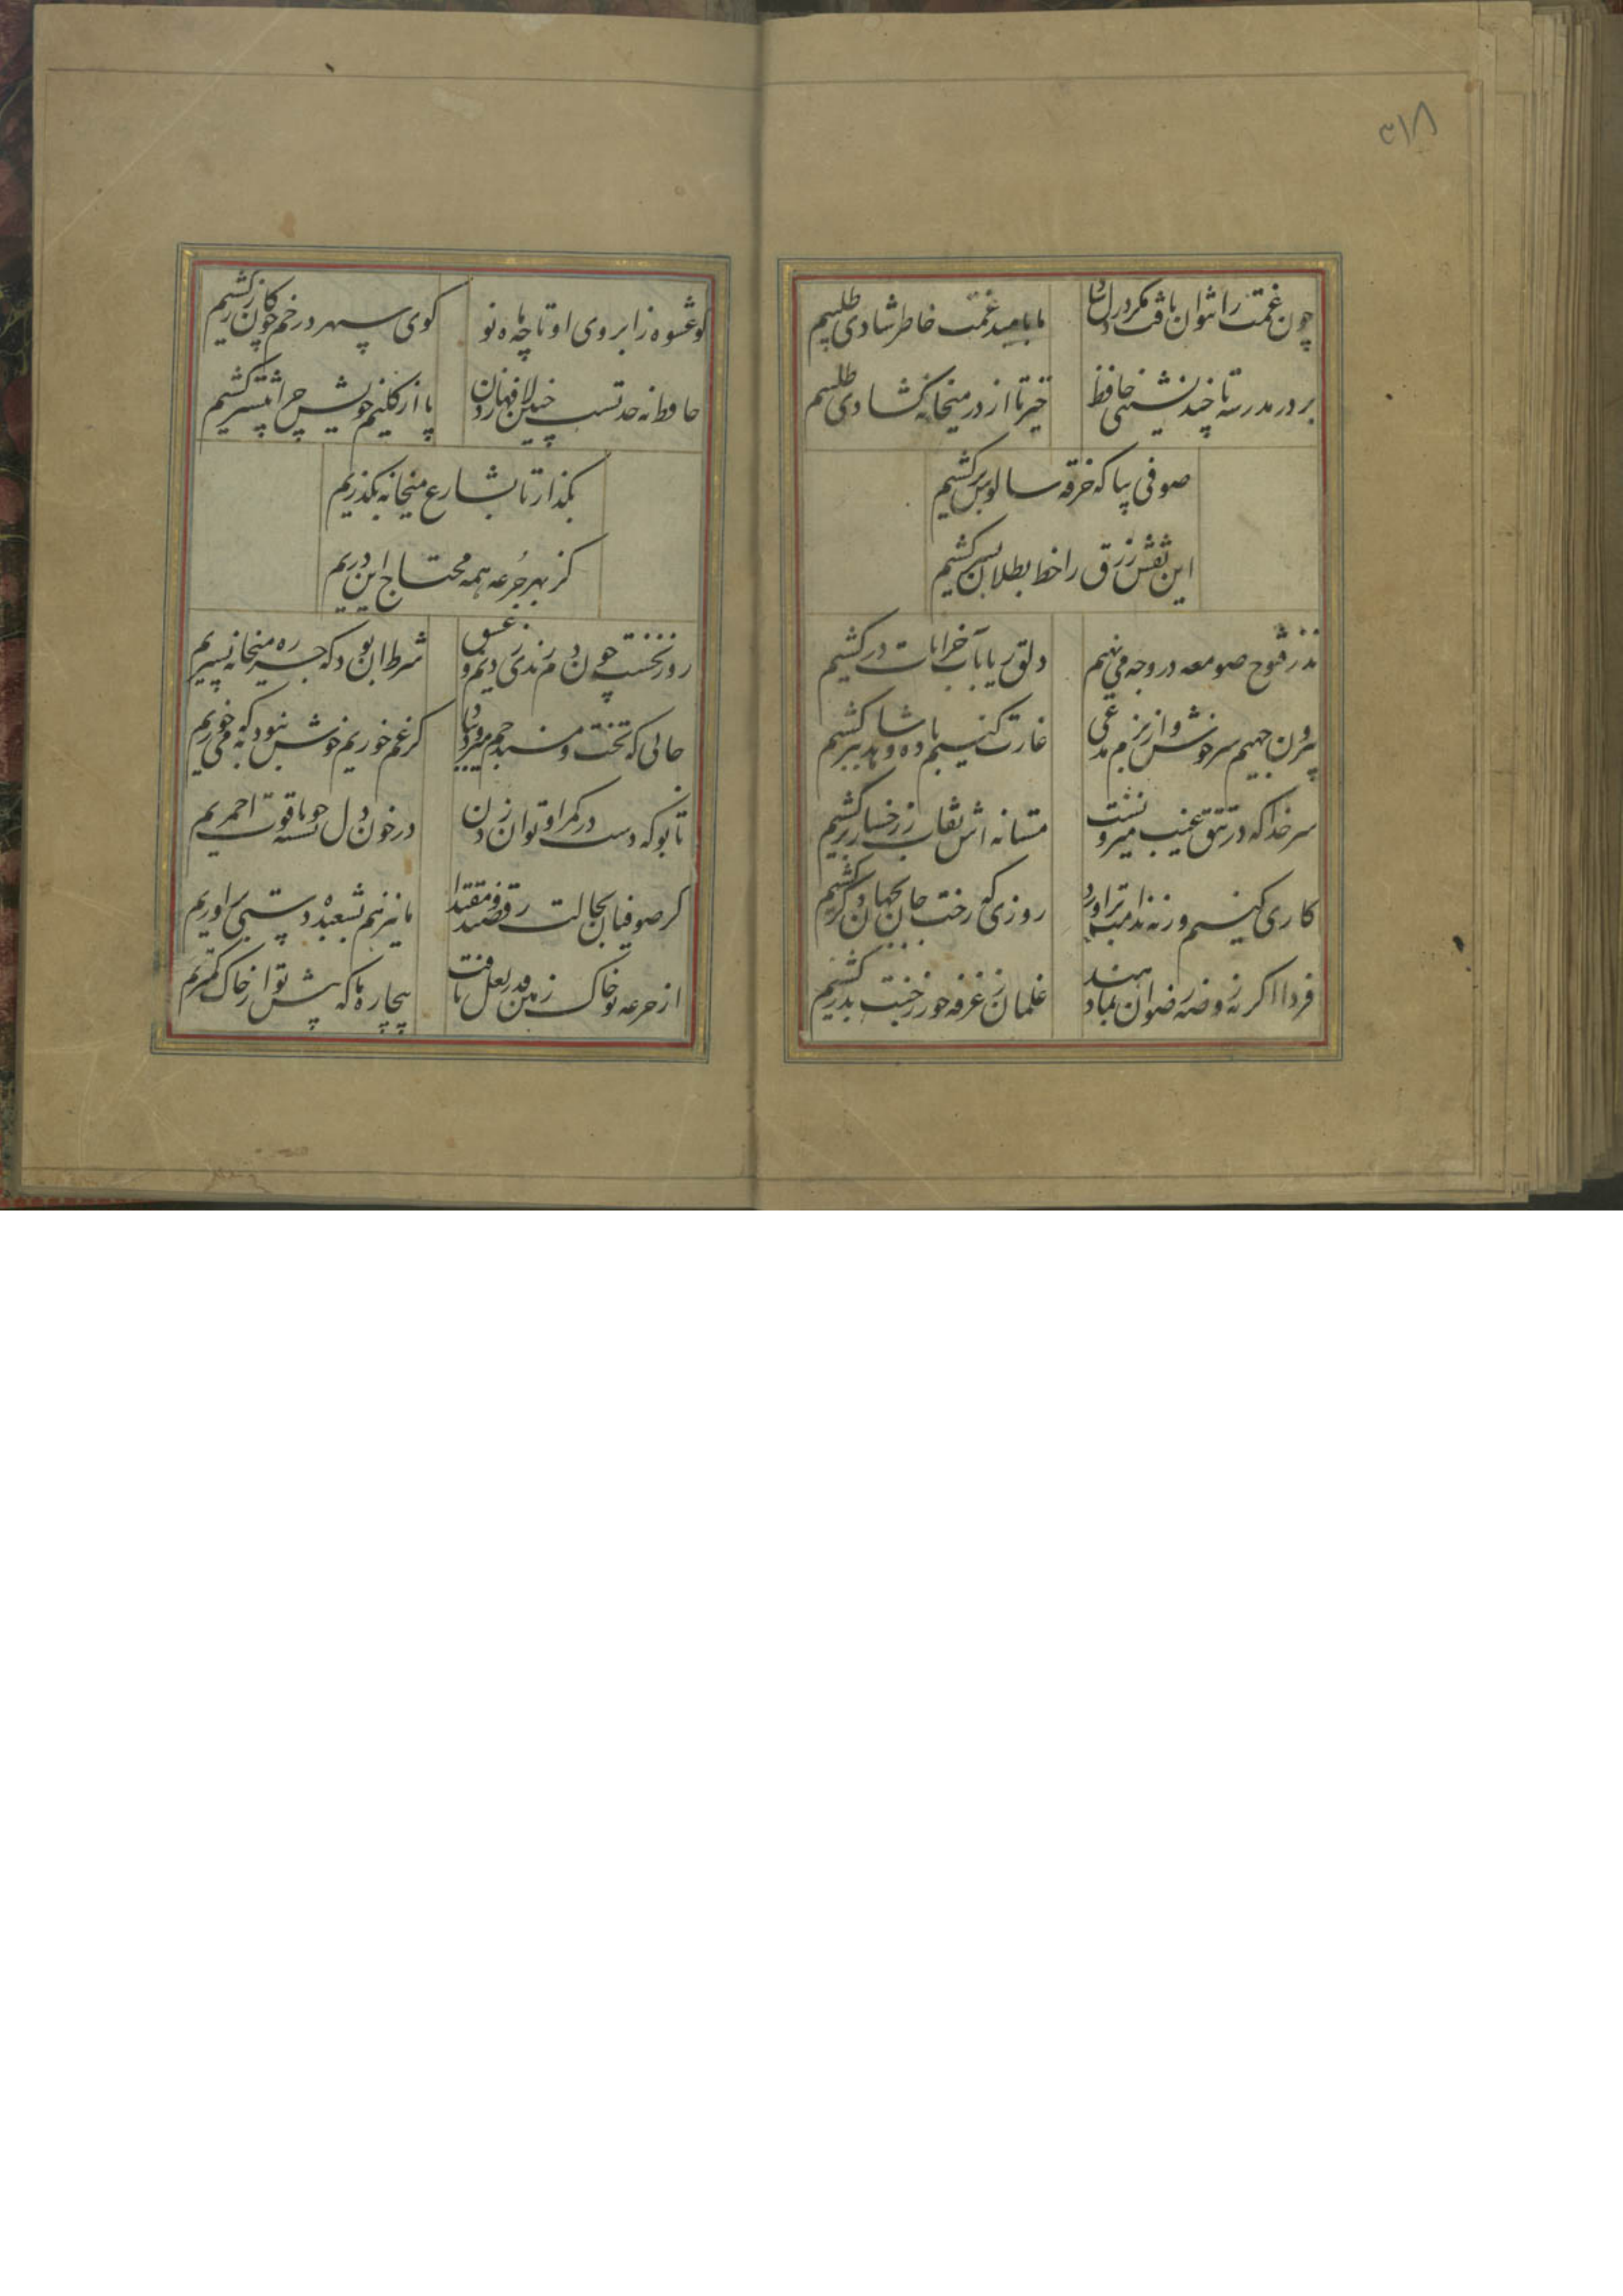 ۳۱۸
چون غمت را نتوان یافت مکر در دل شاد
ما بامید غمت خاطر شادی طلبیم
بر در مدرسه تا چند نشینی حافظ
خیز تا از در میخانه کشادی طلبیم
صوفی بیا که خرقه سالوس برکشیم
این نقش زرق را خط بطلان بسر کشیم
نذر فتوح صومعه در وجه می نهیم
دلق ریا بآب خرابات در کشیم
بیرون جهیم سرخوش و از بزم مدعی
غارت کنیم باده و شاهد ببر کشیم
سر خدا که در تتق غیب میرونشت
مستانه اش نقاب ز رخسار بر کشیم
کاری کنیم ورنه ندامت بر اورد
روزی که رخت جان بجهان دکر کشیم
فردا اکر نه روضه رضوان بما دهند
غلمان ز غرفه حور ز جنت بدر کشیم
کو عشوه ز ابروی او تا چه ماه نو
کوی سپهر در خم چوکان زر کشیم
حافظ نه حد تست چنین لافها زدن
پا از کلیم خویش چرا پیشتر کشیم
بکذار تا بشارع میخانه بکذریم
کز بهر جرعه همه محتاج این دریم
روز نخست چون دم رندی زدیم و عشق
شرط ان بود که جز ره میخانه نسپریم
جائی که تخت و مسند جم میرود بباد
کر غم خوریم خوش نبود به که می خوریم
تا بو که دست در کمر او توان زدن
در خون دل نشسته چو یاقوت احمریم
کر صوفیان بحالت رقصند و مقتدا
ما نیز هم بشعبده دستی بر اوریم
از جرعه تو خاک زمین قدر لعل یافت
بیچاره ما که پیش تو از خاک کمتریم